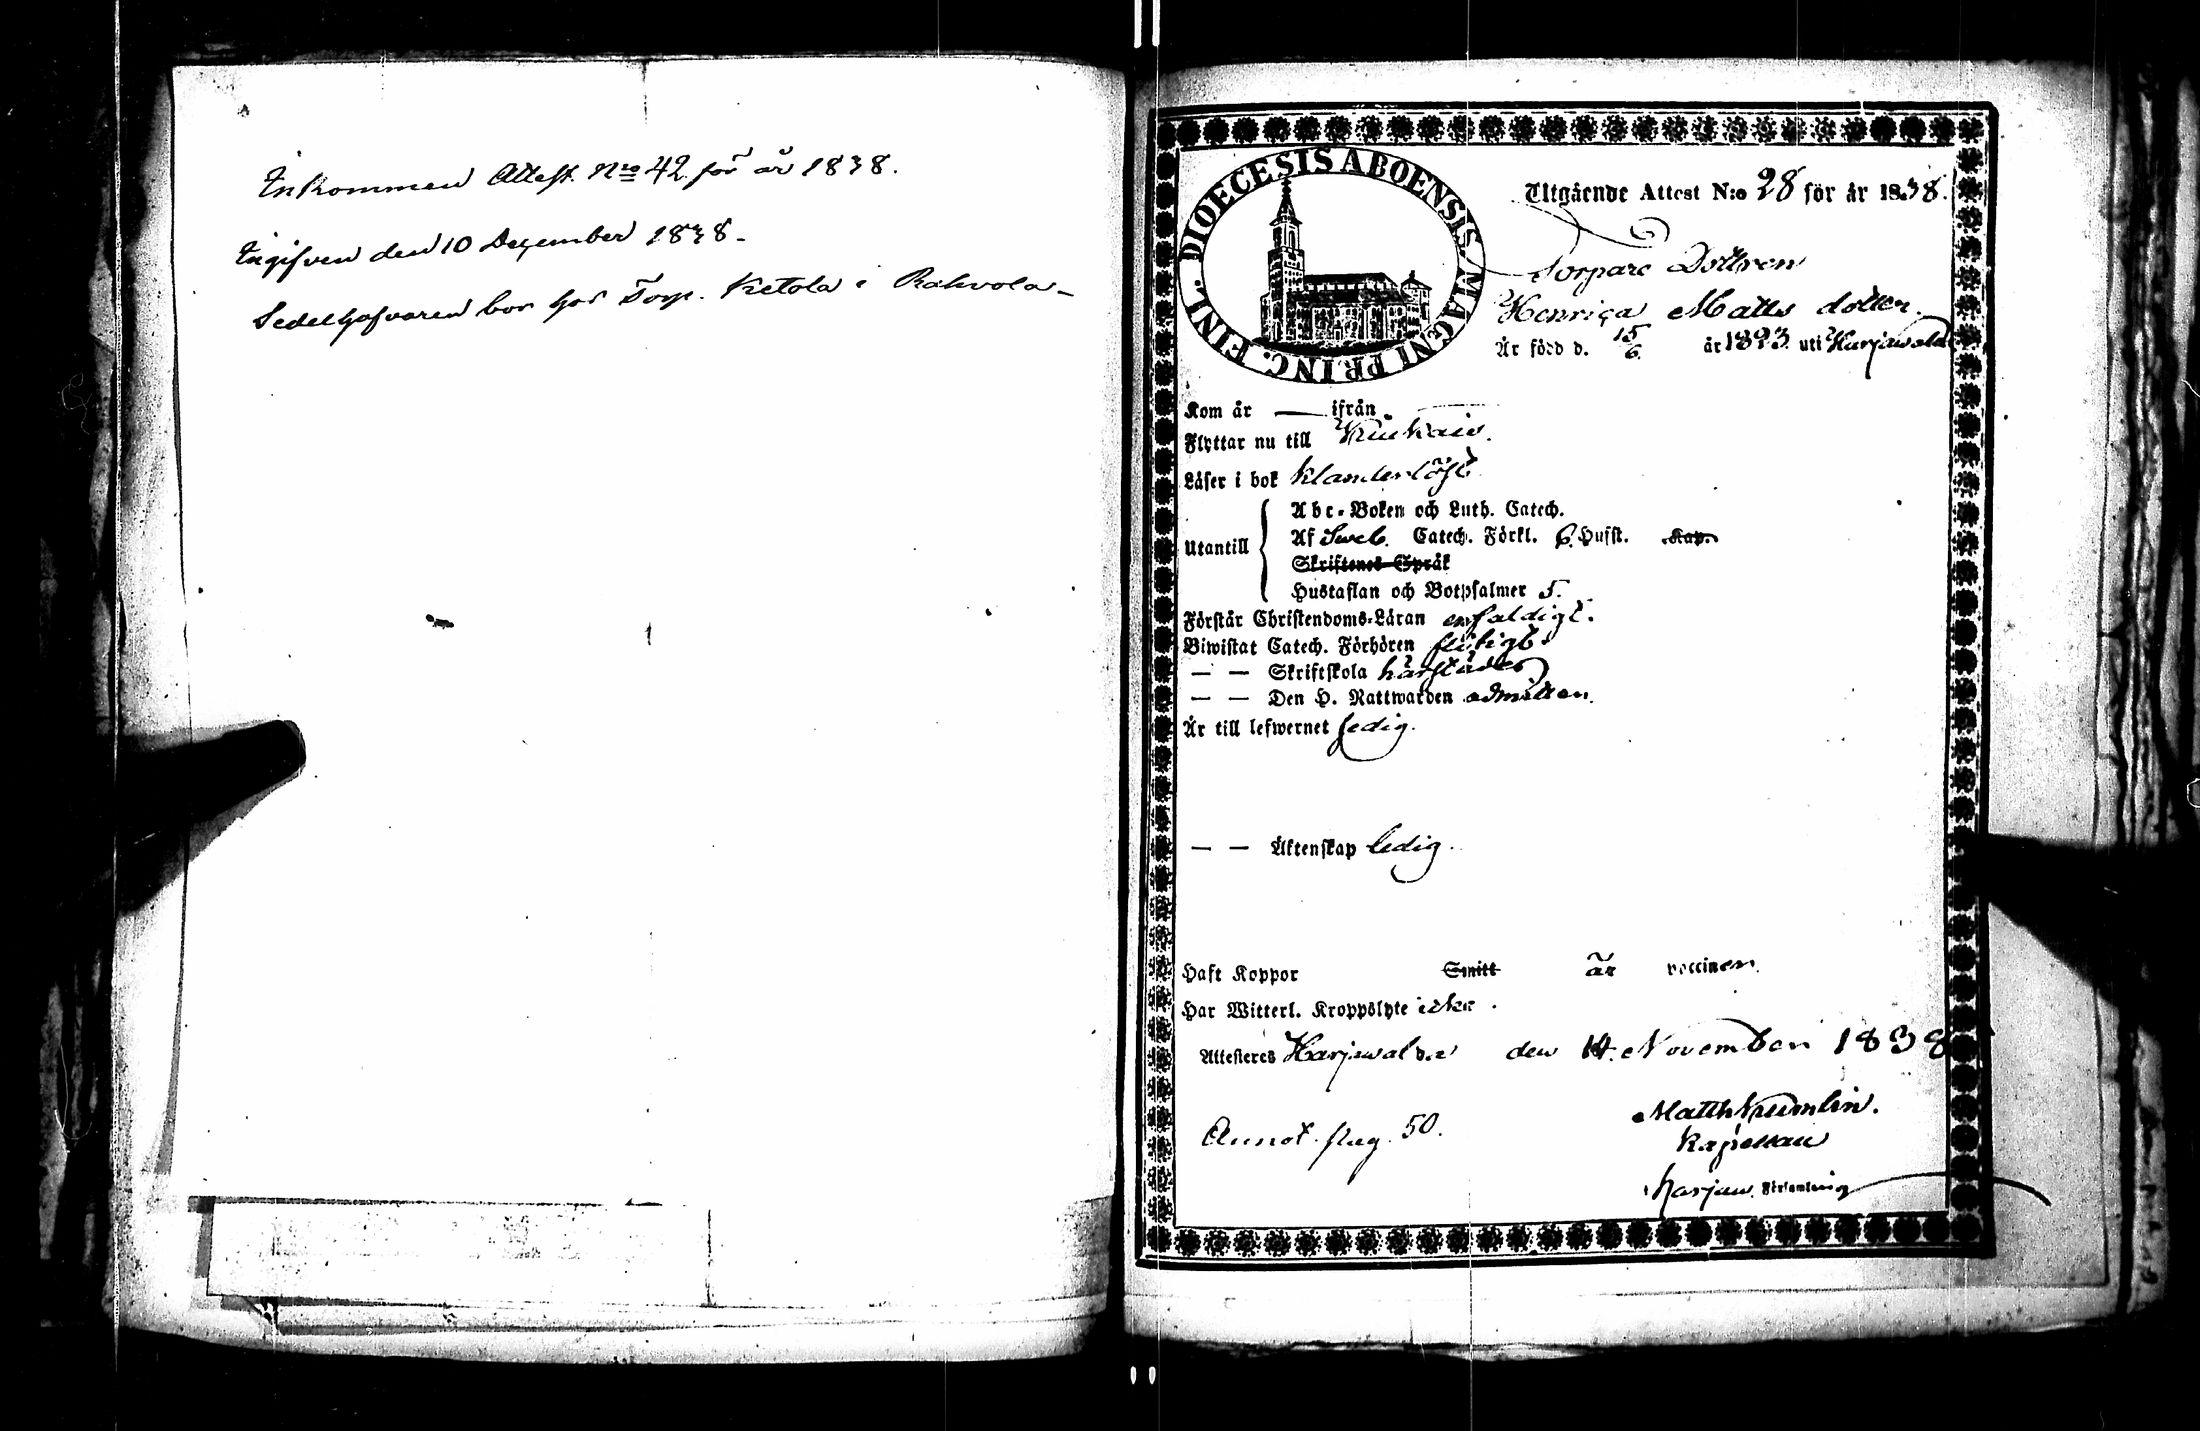 Inkommen Attest. Nro 42 för år 1838.
Ingifven den 10 December 1838.
Sedelhafvaren bor hos Torp. Ketola i Rahvola
DIOECESIS ABOENSIS. MAGNI PRINC. FINL.
Utgående Attest N:o 28 för år 1838.
Torpare Dottren
Henrica Matts dotter.
Är född d. 15/6 år 1823 uti Harjawalda
Kom år — ifrån —
Flyttar nu till Kiukais.
Läser i bok klanderlöst
Utantill
Abc-Boken och Luth. Catech.
Af Sweb. Catech. Förkl. 6. Hufst. Kap.
Skriftenes Språk
Hustaflan och Botpsalmer 5.
Förstår Christendoms-Läran enfaldigt.
Biwistat Catech. Förhören flitigt
— — Skriftskola härstädes
— — Den H. Nattwarden admitteren.
Är till lefwernet ledig.
— — Äktenskap ledig.
Haft Koppor Smitt är vaccineren.
Har Witterl. Kroppslyte icke.
Attesteres Harjawalda den 14. November 1838
Matth Krumlin.
Annot. pag. 50.
Kapellan
Harjaw. Församling